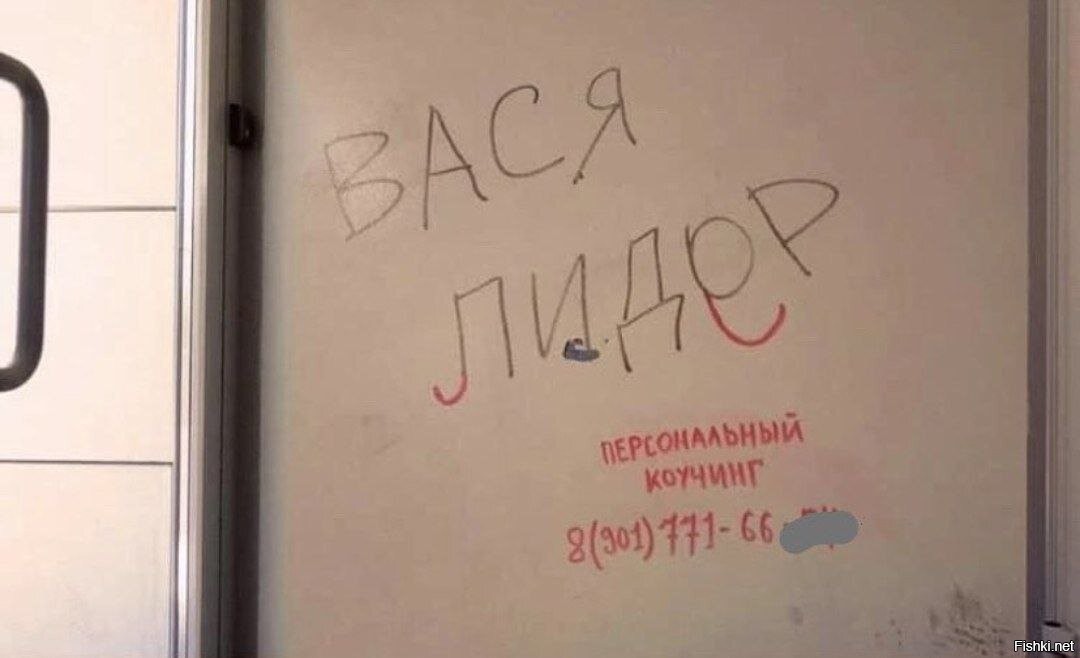 ВАСЯ
ЛИДеР
ПЕРСОНАЛЬНЫЙ
КОУЧИНГ
8(901)771-66
Fishki.net